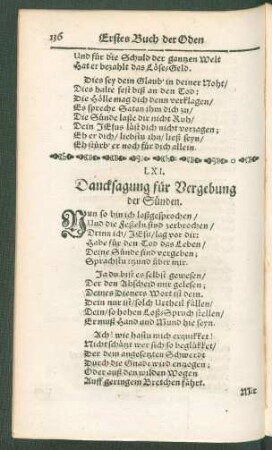 136 Erstes Buch der Oden
Und für die Schuld der gantzen Welt
Hat er bezahlt das Löse-Geld.
Dies sey dein Glaub' in deiner Noht/
Dies halte fest biß an den Tod:
Die Hölle mag dich denn verklagen/
Es spreche Satan ihm dich zu/
Die Sünde lasse dir nicht Ruh/
Dein JEsus läst dich nicht verzagen;
Eh er dich/ liebster ihn/ ließ seyn/
Eh stürb' er noch für dich allein.
LXI.
Dancksagung für Vergebung
der Sünden.
Nun so bin ich loßgesprochen/
Und die Fesseln sind zerbrochen/
Denn ich/ JEsu/ lag vor dir:
Habe für den Tod das Leben/
Deine Sünde sind vergeben;
Sprachstu itzund über mir.
Ja du bist es selbst gewesen/
Der den Abscheid mir gelesen;
Deines Dieners Wort ist dein.
Dein nur ist/ solch Urtheil fällen/
Dein/ so hohen Loß-Spruch stellen/
Er muß Hand und Mund hie seyn.
Ach! wie hastu mich erquikket!
Nicht schätzt wer sich so beglükket/
Der dem angesetzten Schwerdt
Durch die Gnade wird entzogen;
Oder auß den wilden Wogen
Auff geringem Bretchen fährt.
Mir